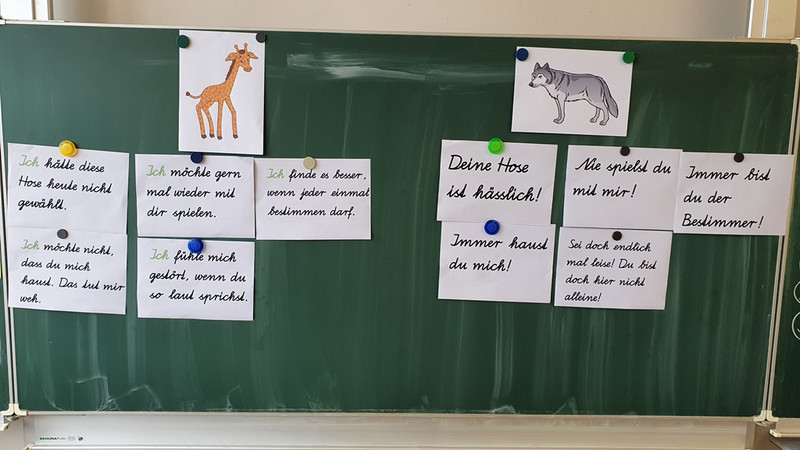 Ich hätte diese
Hose heute nicht
gewählt.
Ich möchte gern
mal wieder mit
dir spielen.
Ich finde es besser,
wenn jeder einmal
bestimmen darf.
Ich möchte nicht,
dass du mich
haust. Das tut mir
weh.
Ich fühle mich
gestört, wenn du
so laut sprichst.
Deine Hose
ist hässlich!
Nie spielst du
mit mir!
Immer bist
du der
Bestimmer!
Immer haust
du mich!
Sei doch endlich
mal leise! Du bist
doch hier nicht
alleine!